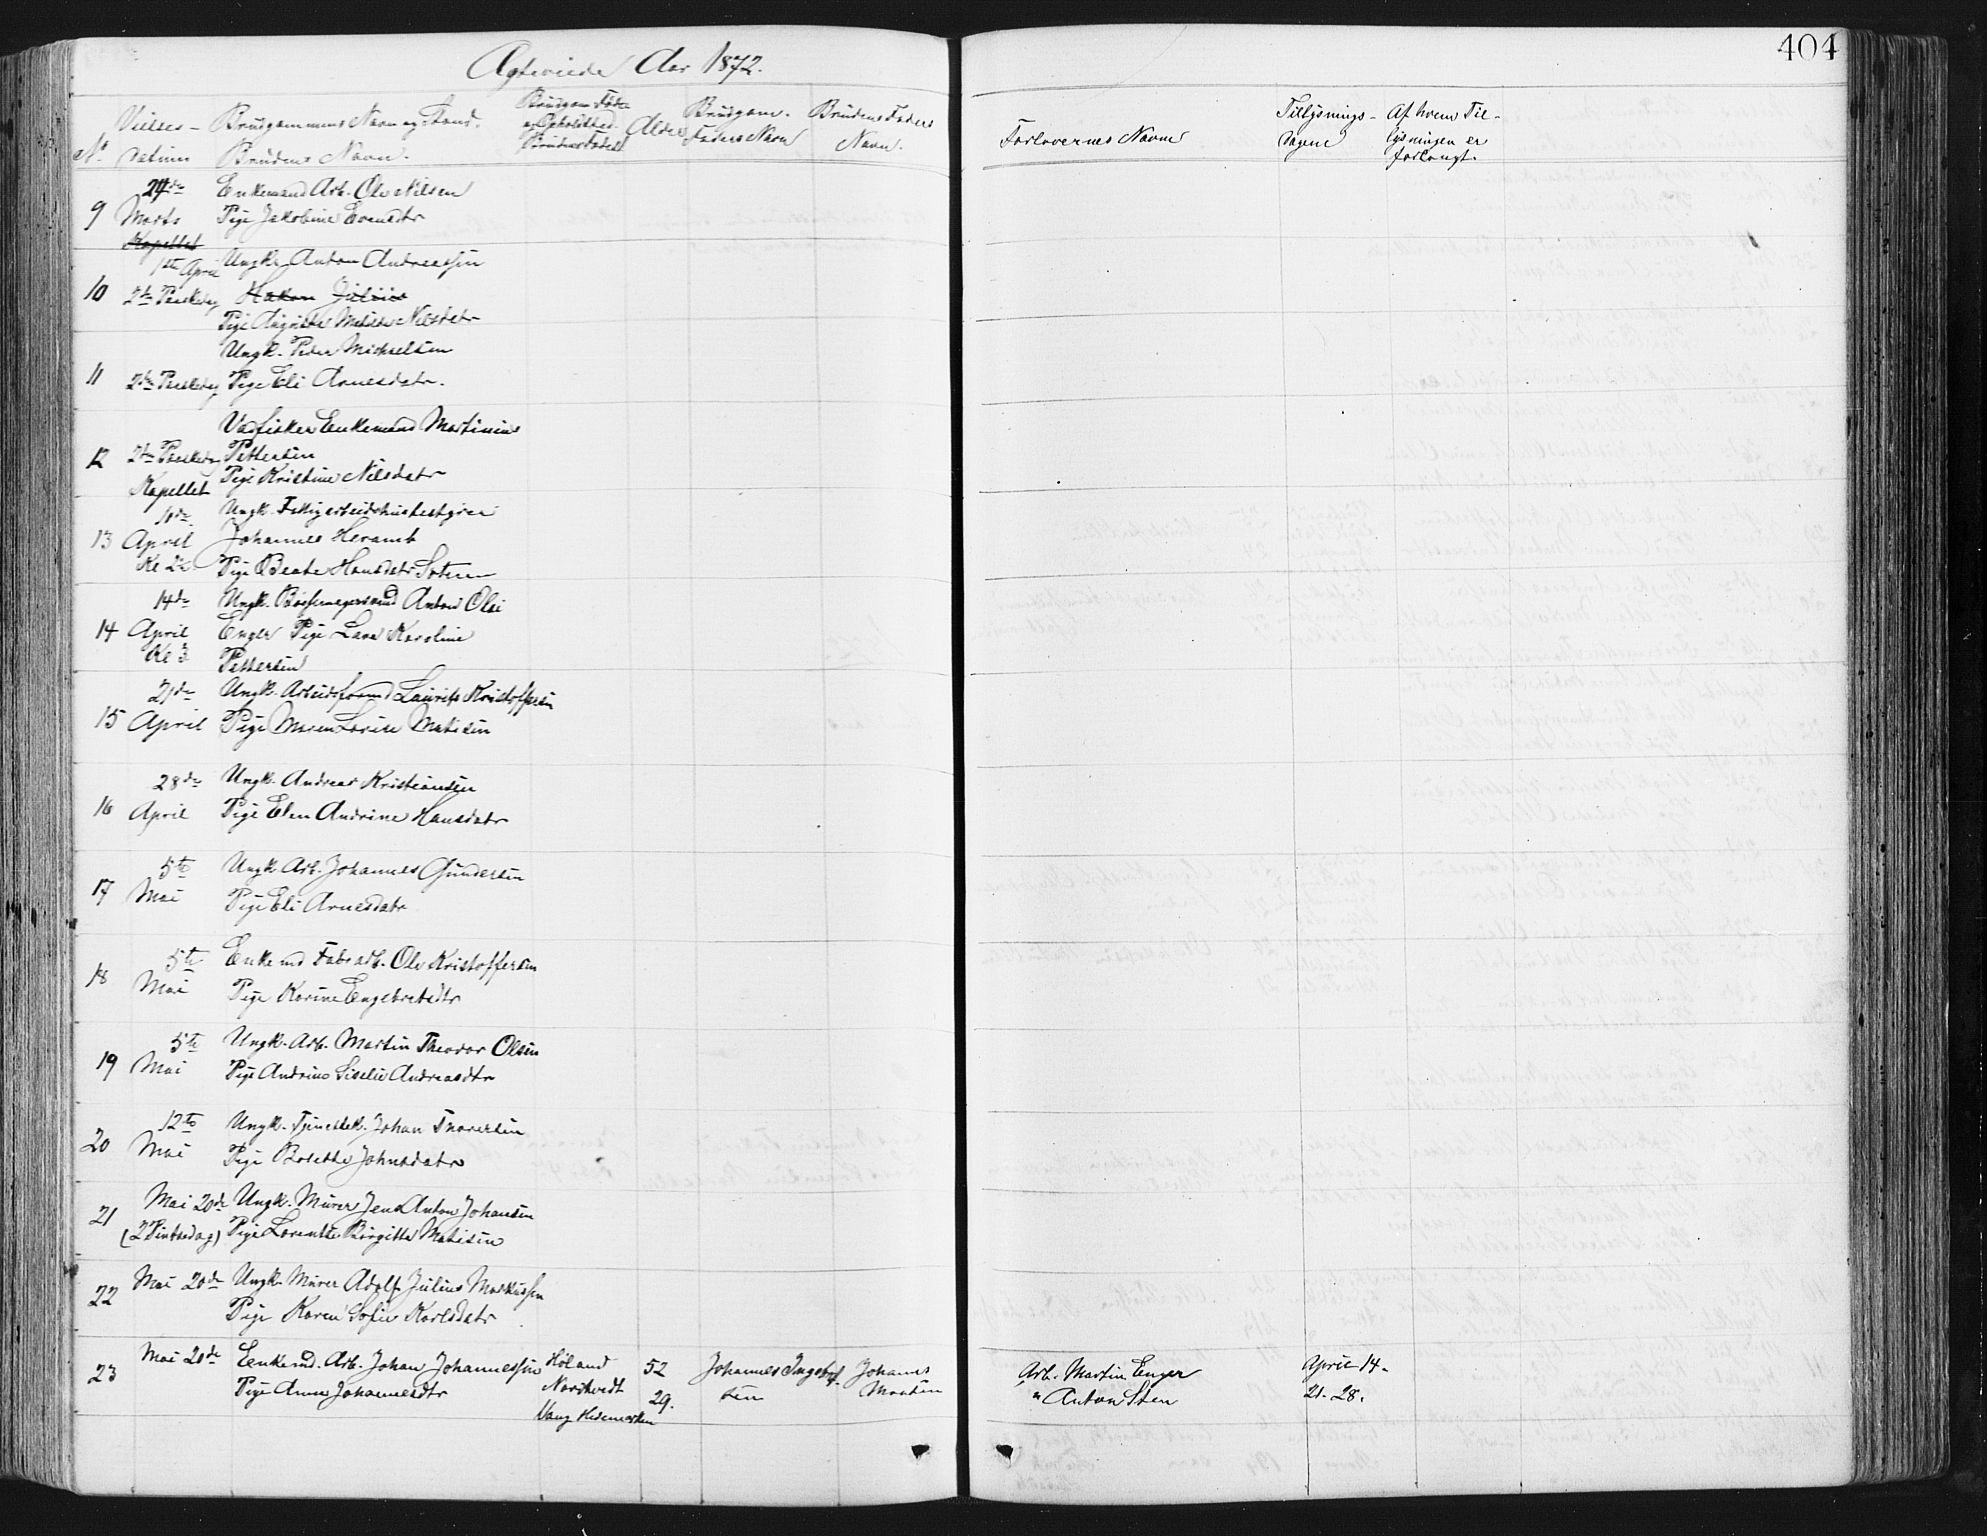 404
Ægteviede Aar 1872.
No
Vielses-
datum
Brudgommens Navn og Stand.
Brudens Navn.
Brudgom Føde
og Opholdsted.
Brudens Fødest
Alder
Brudgom.
Faders Navn
Brudens Faders
Navn.
Forlovernes Navne
Tillysnings-
dagene
Af hvem Til-
lysningen er
forlangt.
9
24de
Marts
Kapellet
Enkemand Arb. Ole Nilsen
Pige Jakobine Evensdtr
10
1ste April
2den Paaskedag
Ungk. Anton Andreassen
Hakon Julius
Pige Augusta Matilde Nilsdatr
11
2den Paaskedag
Ungk. Peder Michaelsen
Pige Eli Arnesdatr.
12
2den Paaskedag
Kapellet
Enkemand Martinius
Pettersen
Pige Kristine Nilsdatr
13
10de
April
Kl 2
Ungk.
Johannes Heramb
Pige Beate Hansdatr
14
14de
April
Kl 3
Ungk. Bøssemagersvend Anton Olai
Enger Pige Lara Karoline
Pettersen
15
21de
April
Ungk. Arbeidsformd Laurits Kristoffersen
Pige Maren Lovise Matisen
16
28de
April
Ungk. Andreas Kristiansen
Pige Elen Andrine Hansdatr
17
5te
Mai
Ungk. Arb. Johannes Gundersen
Pige Eli Arnesdatr
18
5te
Mai
Enkemd Fabrarb. Ole Kristoffersen
Pige Karine Engebretsdtr
19
5te
Mai
Ungk. Arb. Martin Theodor Olsen
Pige Andrine Siselie Andreasdtr
20
12te
Mai
Ungk. Tjenestek. Johan Thoresen
Pige Bolette Johnsdatr
21
Mai 20de
(2 Pintsedag)
Ungk. Murer Jens Anton Johansen
Pige Lorentse Birgitte Matisen
22
Mai 20de
Ungk. Murer Adolf Julius Markussen
Pige Karen Sofie Karlsdatr
23
Mai 20de
Enkemd. Arb. Johan Johannessen
Pige Anne Johannesdtr
Høland
Nordtvedt
Vang Hedemarken
52
29.
Johannes Ingebrigt-
sen
Johannes
Monsen
Arb. Martin Enger
" Anton Sten
April 14-
21- 28.